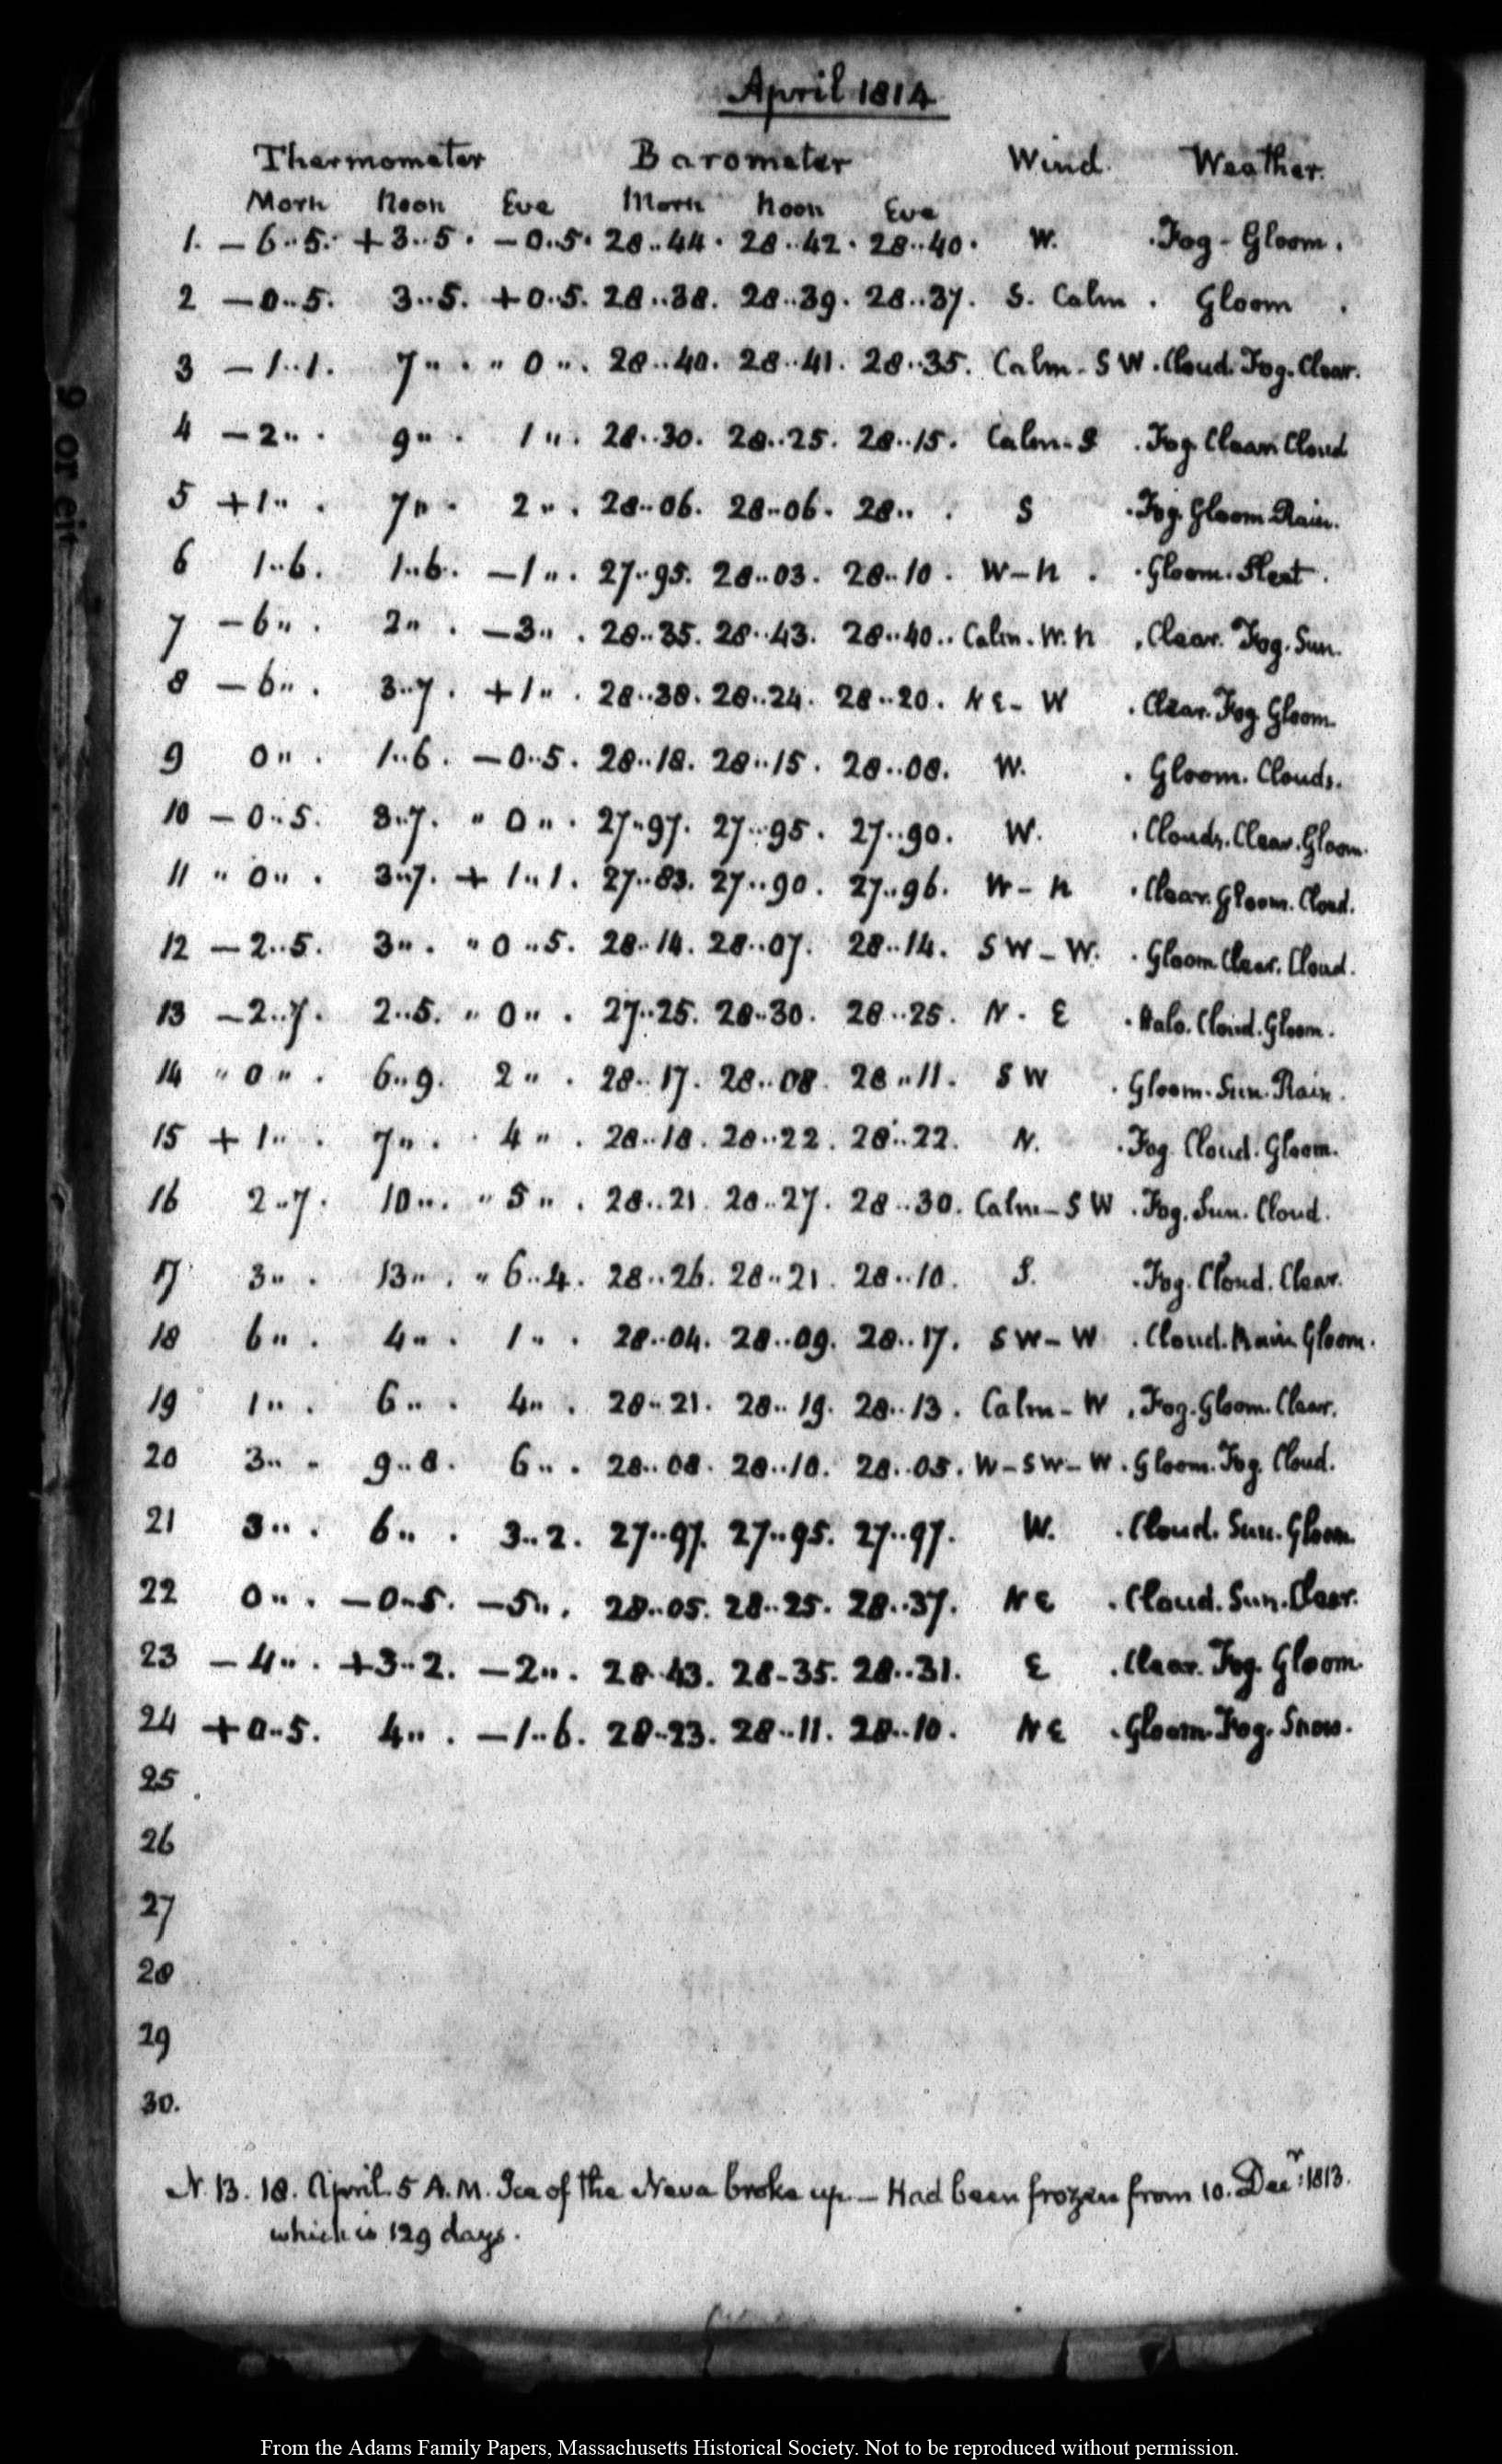 April 1814
Thermometer Barometer Wind. Weather.
Morn Noon Eve Morn Noon Eve
1. – 6..5. + 3..5. – 0..5. 28..44. 28..42. 28..40. W. . Fog – Gloom.
2 – 0..5. 3..5. + 0..5. 28..38. 28..39. 28..37. S. Calm . Gloom .
3 – 1..1. 7 " . " 0 " . 28..40. 28..41. 28..35. Calm – S W . Cloud. Fog. Clear.
4 – 2 " . 9 " . 1 " . 28..30. 28..25. 28..15. Calm – S . Fog. Clear. Cloud
5 + 1 " . 7 " . 2 " . 28..06. 28..06. 28.. . S . Fog. Gloom. Rain.
6 1..6. 1..6. – 1 " . 27..95. 28..03. 28..10. W – N . . Gloom. Sleet.
7 – 6 " . 2 " . – 3 " . 28..35. 28..43. 28..40.. Calm. W. N . Clear. Fog. Sun.
8 – 6 " . 3..7. + 1 " . 28..38. 28..24. 28..20. N E – W . Clear. Fog. Gloom.
9 0 " . 1..6. – 0..5. 28..18. 28..15. 28..08. W. . Gloom. Clouds.
10 – 0..5. 3..7. " 0 " . 27..97. 27..95. 27..90. W. . Clouds. Clear. Gloom.
11 " 0 " . 3..7. + 1..1. 27..83. 27..90. 27..96. W – N . Clear. Gloom. Cloud.
12 – 2..5. 3 " . " 0..5. 28..14. 28..07. 28..14. S W – W. . Gloom. Clear. Cloud.
13 – 2..7. 2..5. " 0 " . 27..25. 28..30. 28..25. N . E . Halo. Cloud. Gloom.
14 " 0 " . 6..9. 2 " . 28..17. 28..08. 28..11. S W . Gloom. Sun. Rain.
15 + 1 " . 7 " . 4 " . 28..18. 28..22. 28..22. N. . Fog. Cloud. Gloom.
16 2..7. 10 " . " 5 " . 28..21. 28..27. 28..30. Calm – S W . Fog. Sun. Cloud.
17 3 " . 13 " . " 6..4. 28..26. 28..21. 28..10. S. . Fog. Cloud. Clear.
18 6 " . 4 " . 1 " . 28..04. 28..09. 28..17. S W – W . Cloud. Rain. Gloom.
19 1 " . 6 " . 4 " . 28..21. 28..19. 28..13. Calm – W . Fog. Gloom. Clear.
20 3 " . 9..8. 6 " . 28..08. 28..10. 28..05. W – S W – W . Gloom. Fog. Cloud.
21 3 " . 6 " . 3..2. 27..97. 27..95. 27..97. W. . Cloud. Sun. Gloom.
22 0 " . – 0..5. – 5 " . 28..05. 28..25. 28..37. N E . Cloud. Sun. Clear.
23 – 4 " . + 3..2. – 2 " . 28..43. 28..35. 28..31. E . Clear. Fog. Gloom.
24 + 0..5. 4 " . – 1..6. 28..23. 28..11. 28..10. N E . Gloom. Fog. Snow.
25
26
27
28
29
30.
N. B. 18. April. 5 A.M. Ice of the Neva broke up. – Had been frozen from 10. Decr: 1813.
which is 129 days.
From the Adams Family Papers, Massachusetts Historical Society. Not to be reproduced without permission.